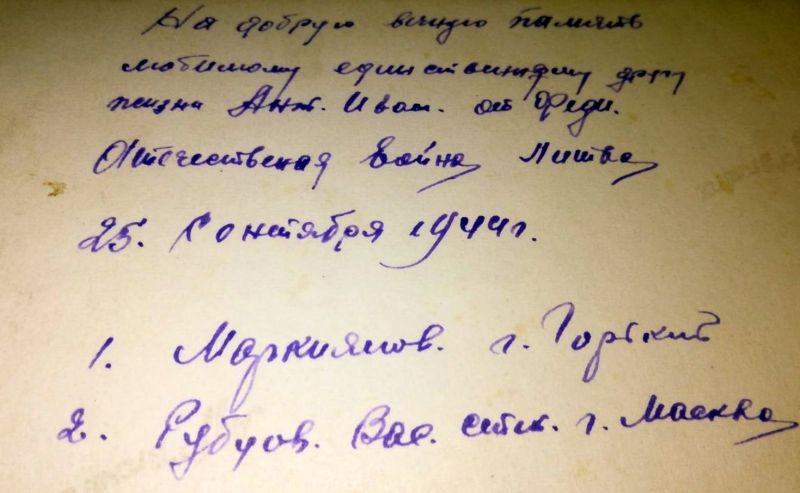 На добрую вечную память
любимому единственному другу
жизни Ант. Иван. от Феди.
Отечественая Война, Литва,
25. Сентября 1944 г.
1. Маркиянов. г. Горький
2. Рубцов. Вас. г. Москва,